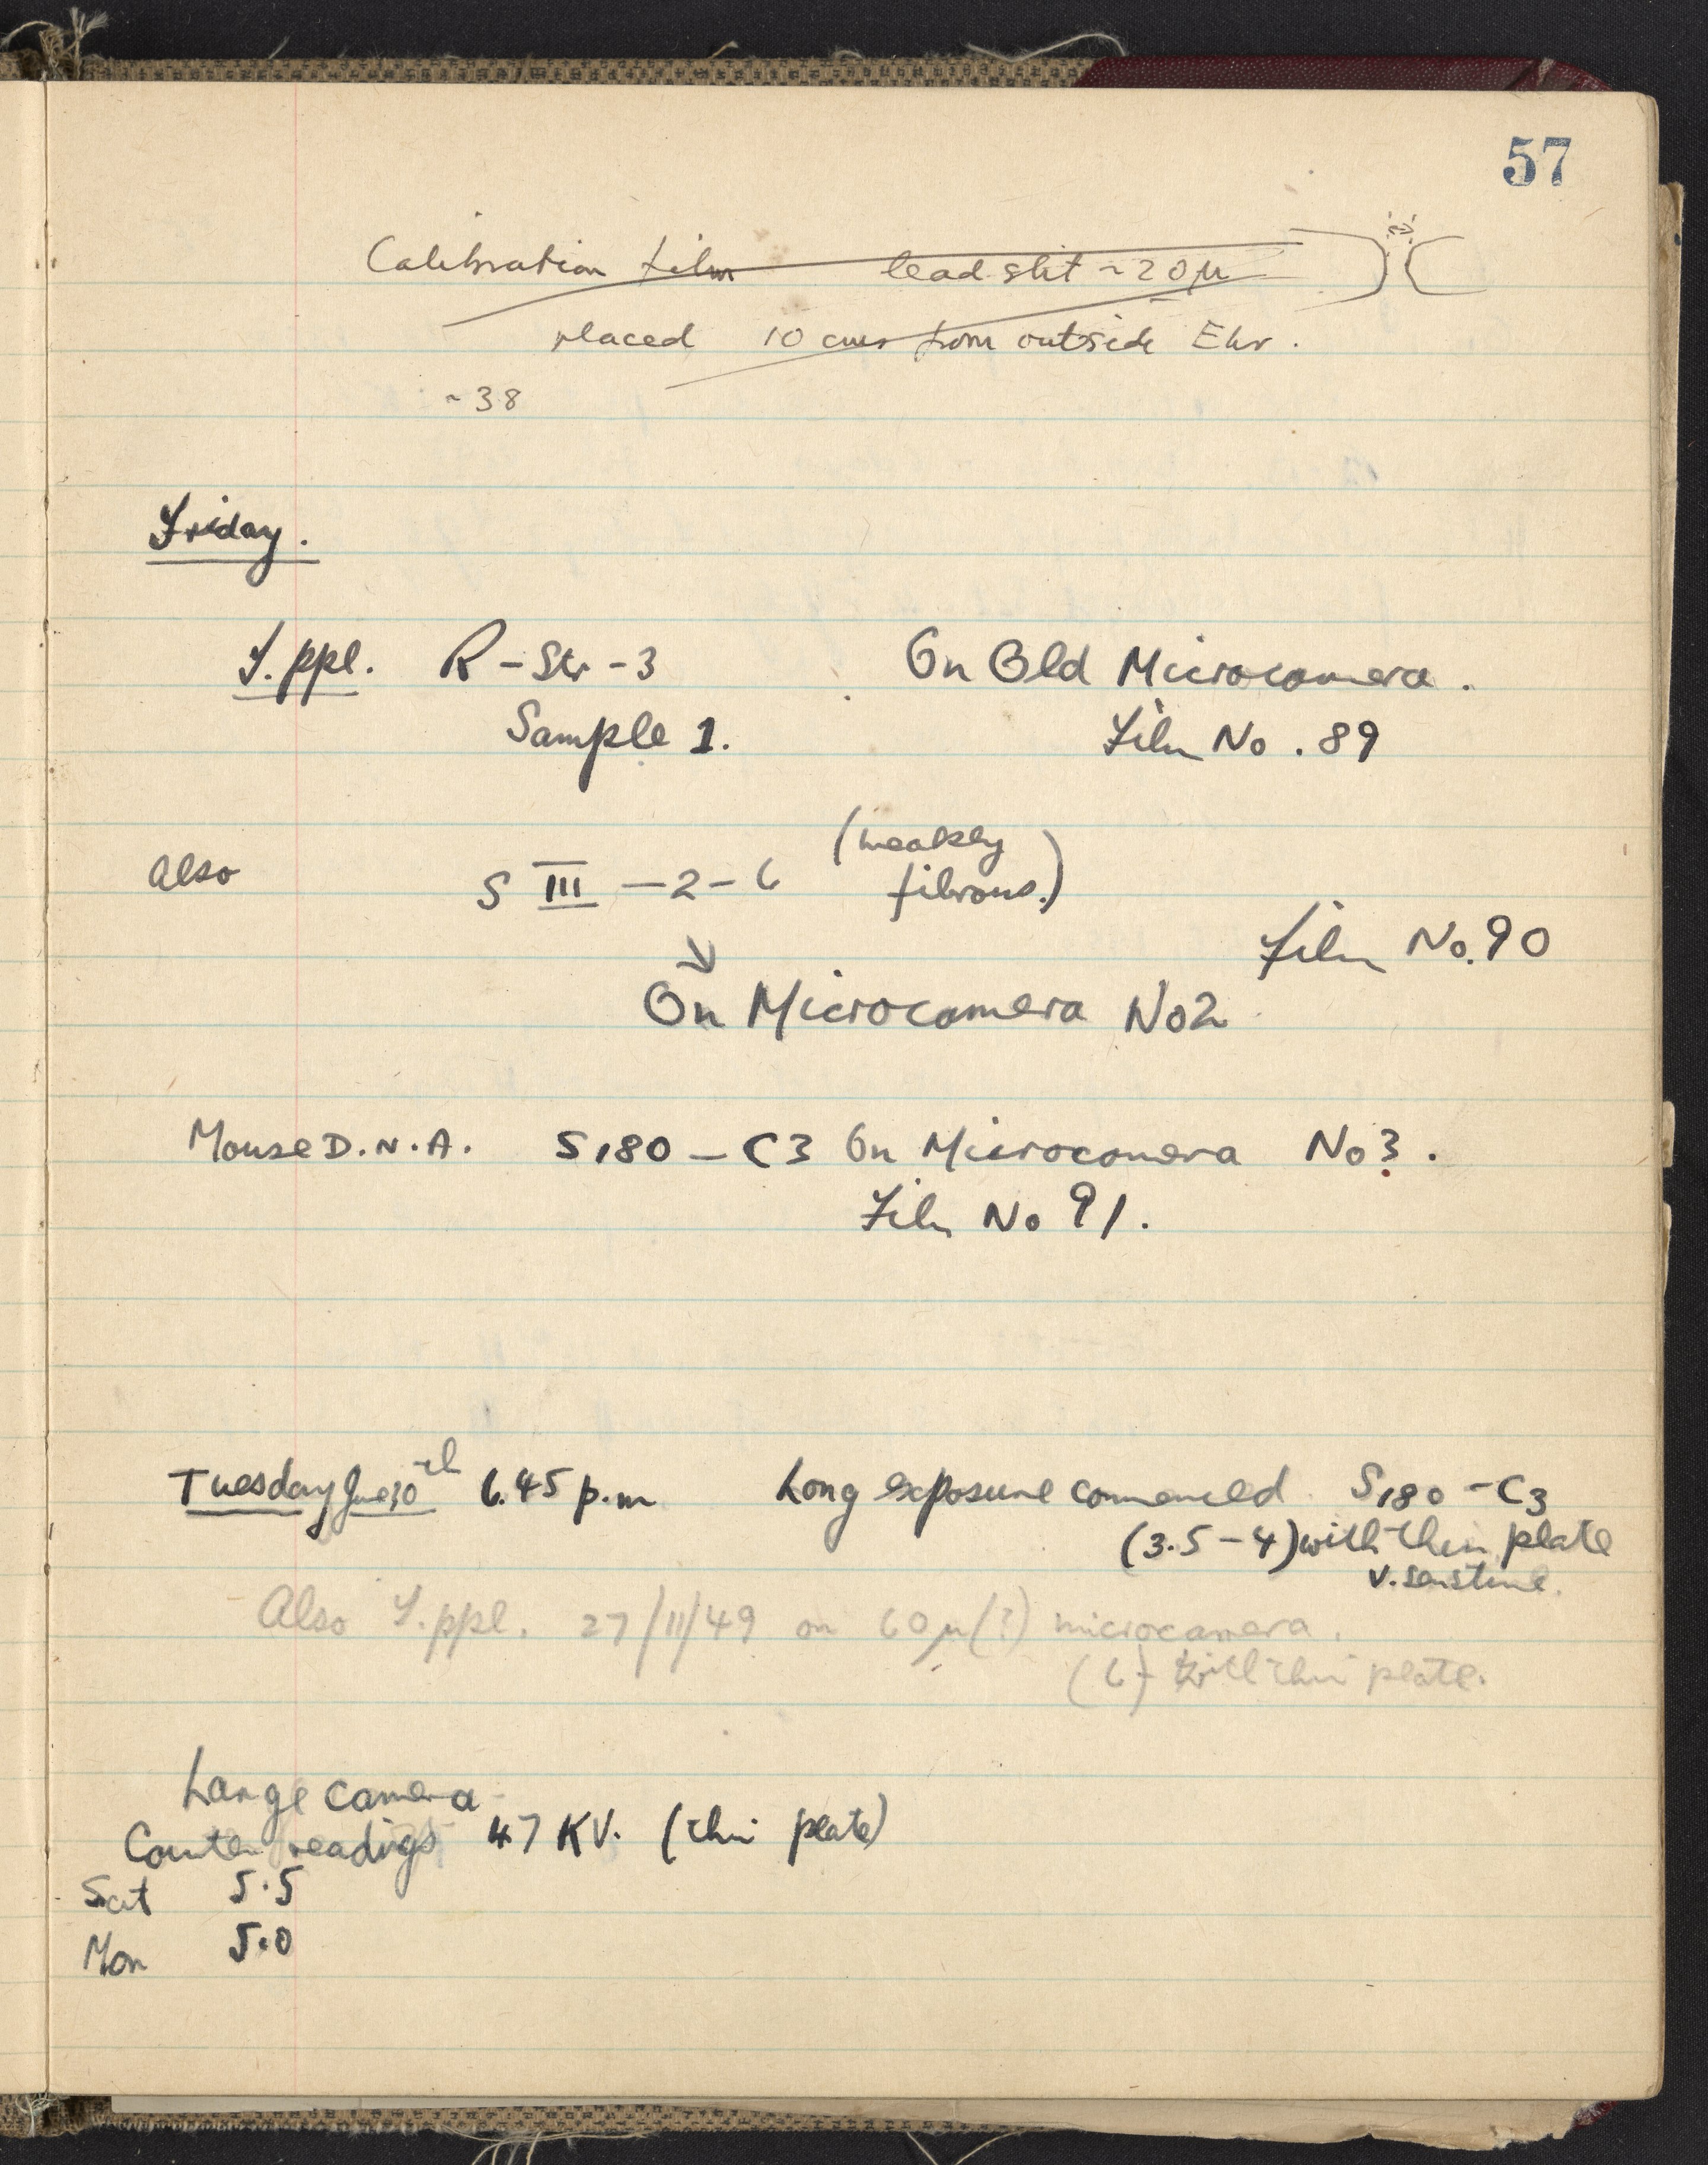 57
Calibration film lead slit ~20μ
placed 10 cms from outside Ehr.
~38
Friday.
T.ppl. R-Str-3 On Old Microcamera.
Sample 1. Film No. 89
Also S III-2-6 (weakly
fibrous.)
Film No. 90
On Microcamera No2
Mouse D.N.A. S180-C3 On Microcamera No3.
Film No 91.
Tuesday 10th 6.45 p.m Long exposure commenced S180-C3
(3.5-4) with thin plate
v. senstive.
Also T.ppl. 27/11/49 on 60μ(?) microcamera.
(6) with thin plate.
Large camera
Counter readings 47 KV. (thin plate)
Sat 5.5
Mon 5.0